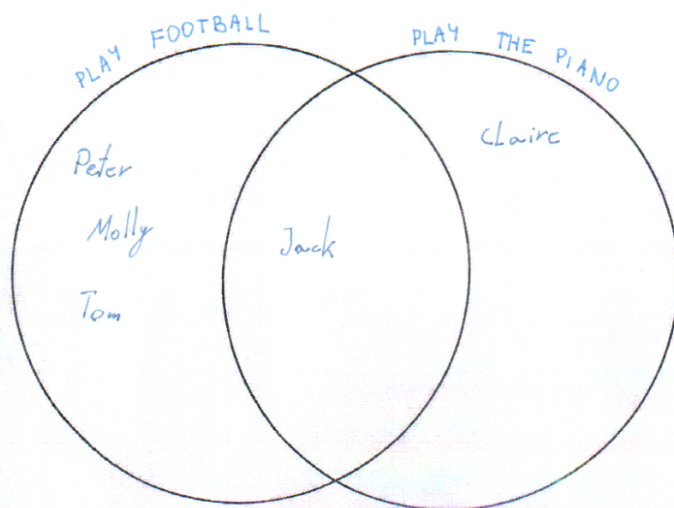 PLAY FOOTBALL
PLAY THE PIANO
Peter
Molly
Tom
Jack
CLaire